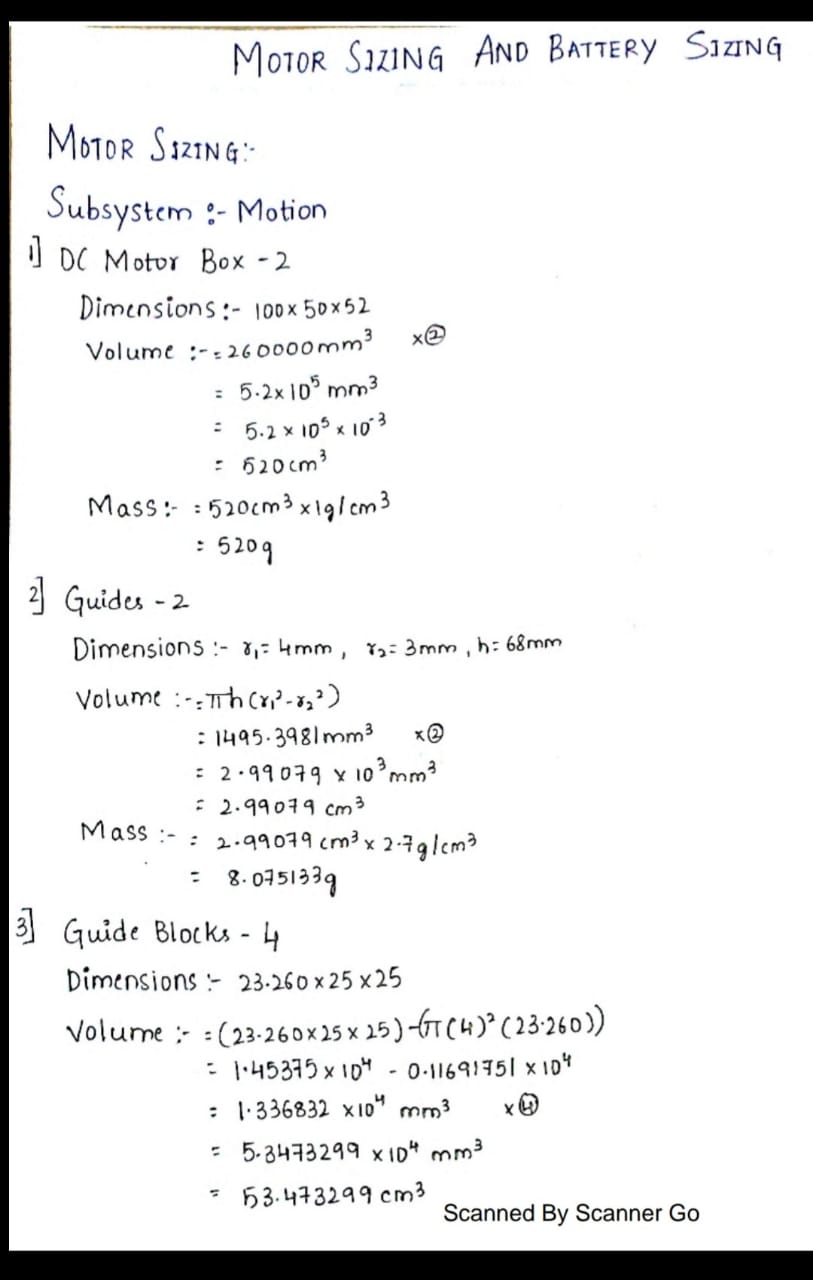 MOTOR SIZING AND BATTERY SIZING
MOTOR SIZING:-
Subsystem :- Motion
1] DC Motor Box - 2
Dimensions :- 100 x 50 x 52
Volume :- = 260000 mm³ x②
= 5.2 x 10⁵ mm³
= 5.2 x 10⁵ x 10⁻³
= 520 cm³
Mass :- = 520cm³ x 1g/cm³
= 520g
2] Guides - 2
Dimensions :- r₁= 4mm, r₂= 3mm, h= 68mm
Volume :- = πh (r₁² - r₂²)
= 1495.3981 mm³ x②
= 2.99079 x 10³ mm³
= 2.99079 cm³
Mass :- = 2.99079 cm³ x 2.7g/cm³
= 8.075133g
3] Guide Blocks - 4
Dimensions :- 23.260 x 25 x 25
Volume :- = (23.260 x 25 x 25) - (π(4)² (23.260))
= 1.45375 x 10⁴ - 0.11691751 x 10⁴
= 1.336832 x 10⁴ mm³ x④
= 5.3473299 x 10⁴ mm³
= 53.473299 cm³
Scanned By Scanner Go